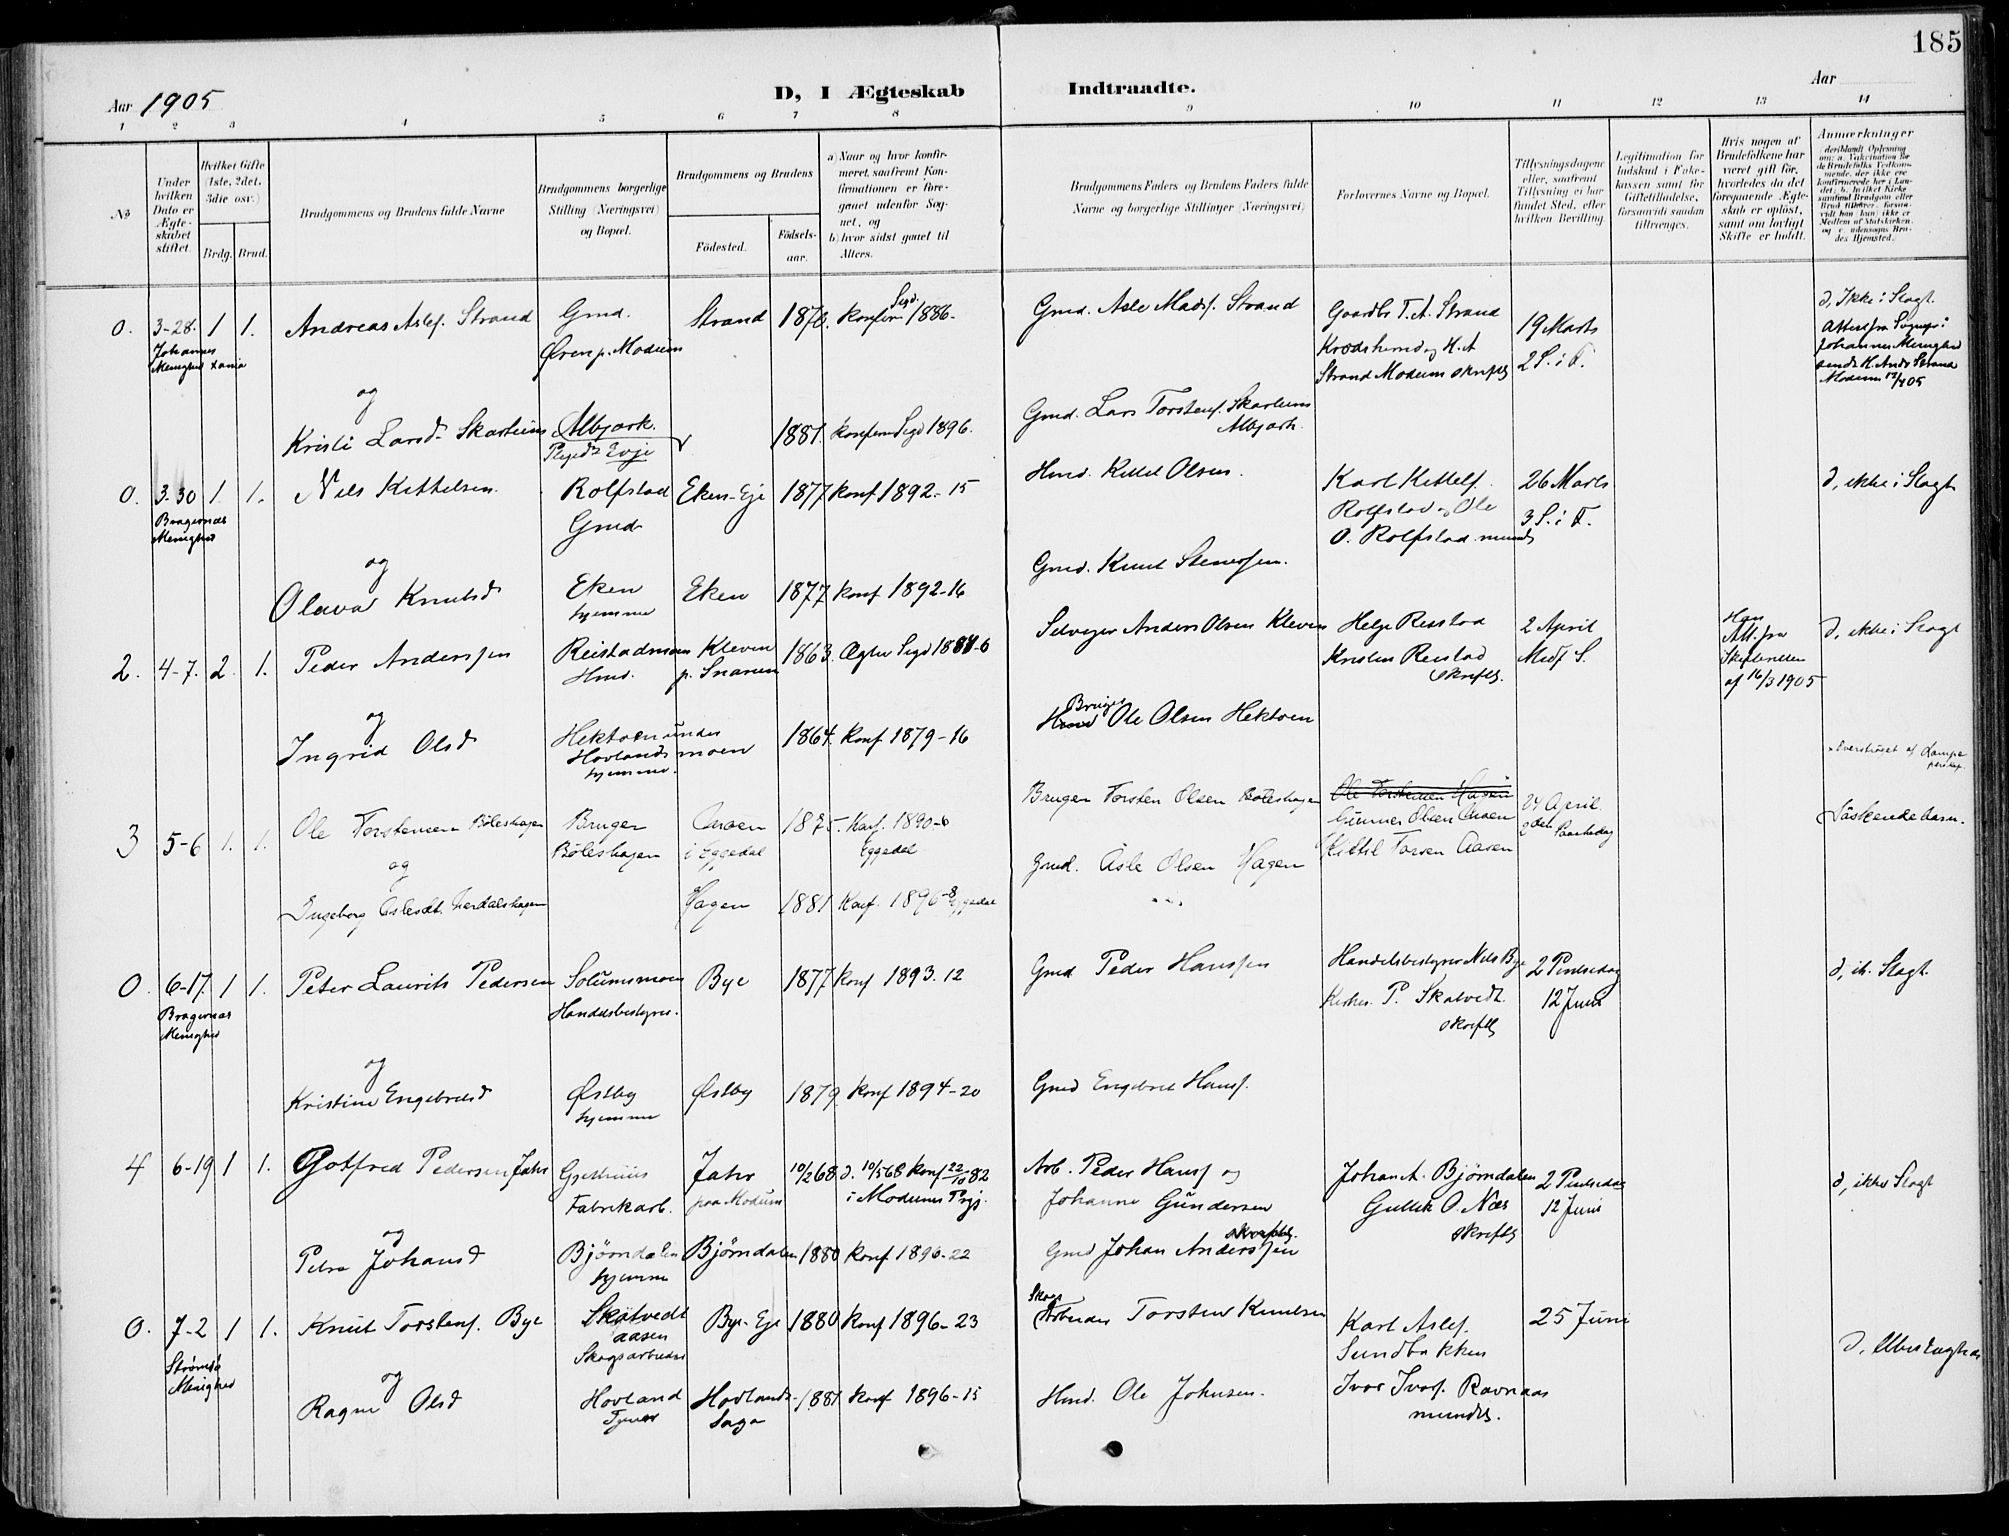 185
Aar 1905
D, I Ægteskab Indtraadte.
Aar
1 2 3 4 5 6 7 8 9 10 11 12 13 14
No
Under hvilken Dato er Ægteskabet stiftet.
Hvilket Gifte (1ste, 2det, 3die osv.)
Brdg. Brud.
Brudgommens og Brudens fulde Navne
Brudgommens borgerlige Stilling (Næringsvei) og Bopæl.
Brudgommens og Brudens
Födested. Födsels-aar.
a) Naar og hvor konfirmeret, saafremt Konfirmationen er foregaaet udenfor Sognet, og
b) hvor sidst gaaet til Alters.
Brudgommens Faders og Brudens Faders fulde Navne og borgerlige Stillinger (Næringsvei)
Forlovernes Navne og Bopæl.
Tillysningsdagene eller, saafremt Tillysning ei har fundet Sted, efter hvilken Bevilling.
Legitimation for Indskud i Enkekassen samt for Giftetilladelse, forsaavidt saadan tiltrænges.
Hvis nogen af Brudefolkene har været gift för, hvorledes da det foregaaende Ægteskab er oplöst, samt om lovligt Skifte er holdt.
Anmærkninger
0. 3-28. 1 1. Andreas Aslef. Strand Gmd. Strand 1870. Konfirm Sigd. 1886. Gmd. Asle Madsf. Strand Gaardbr T. A. Strand 19 Marts d, Ikke i Slagt.
Johannes Menighed Xania Øren p. Modum Krødsherred og H. A Strand Modum skriftlg 2 S. i F. Attest fra Sognepr i Johannes Menighed
Modum 12/4 05
og
Kristi Larsd. Skartum Albjørk. 1881. Konfirm Sigd 1896. Gmd. Lars Torstenf. Skartum Albjørk.
0. 3-30 1. 1. Nils Kittelsen Rolfstad Eken-Eje 1877 Konf 1892-15 Hmd. Kittel Olsen. Karl Kittelf. 26 Marts d, ikke i Slagt
Bragernæs Menighed Gmd. Rolfstad og Ole O. Rolfstad mundtl 3 S. i F.
og
Olava Knutsd Eken hjemme Eken 1877 Konf 1892-16 Gmd. Knut Stenersen.
2. 4-7. 2. 1. Peder Anderssen Reistadmoen Kleven 1863. Sigd Selveger Anders Olsen Kleven Helge Reistad 2 April d, ikke i Slagt
Hmd. p. Snarum Kristen Reistad skriftlg. Midf S. Han Att. fra Skifteretten af 16/3 1905
og
Ingrid Olsd Hektoen under Hovlandsmoen hjemme. 1864. Konf 1879-16 Bruger Ole Olsen Hektoen
3 5-6 1. 1. Ole Torstensen Böleshagen Bruger Moen 1875. Konf. 1890-6 Bruger Torsten Olsen Böleshagen Ole Torstensen Hagen 24 April Söskendebarn.
Böleshagen i Eggedal Eggedal Gunner Olsen Moen 2den Paaskedag
og Gmd. Asle Olsen Hagen Kittil Torsen Aasen
Ingeborg Aslesdt. Hagen 1881 Konf. 1896-8 Eggedal
0. 6-17. 1 1. Peter Laurits Pedersen Solumsmoen Bye 1877 Konf 1893. 12 Gmd Peder Hanssen Handelsbestyrer Nils Bye 2 Pintsedag d, ik. Slagt.
Bragernæs Menighed Handelsbestyrer. Kirkes. P. Skatvedt. skriftlg 12 Juni
og
Kristine Engebretsd Østby hjemme Østby 1879. Konf 1894-20 Gmd Engebret Hansf.
4 6-19 1 1. Gotfred Pedersen Jahr Gjethuus Jahr 10/2 68 d. 10/5 68 Konf 22/10 82 Arb. Peder Hansf og Johan A. Bjørndalen 2 Pintsedag d, ikke Slagt
Fabrikarb. paa Modum i Modums Prgj. Johanne Gundersen Gullek O. Næs 12 Juni
og skriftlg. skriftlg
Petra Johansd Bjørndalen hjemme Bjørndalen 1880 Konf 1896-22 Gmd Johan Anderssen
0. 7-2 1 1. Knut Torstenf. Bye Skatvedt aasen Bye-Eje 1880 Konf 1896-23 Skogs Arbeider Torsten Knutsen Karl Aslef. 25 Juni
Strømsø Menighed Skogsarbeider Sundbakken d, Ubeslægtede
og
Ragne Olsd Hovland Tjener Hovlands-Saga 1881 Konf 1896-15 Hmd. Ole Johnsen. Ivar Ivarf. Ravnaas mundtl.